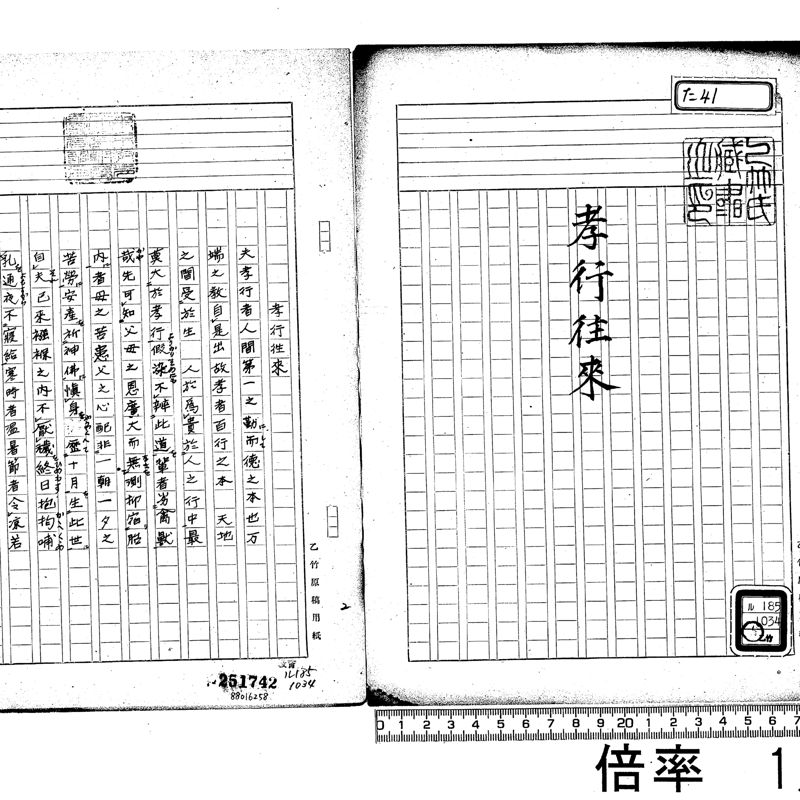 た41
乙竹氏
蔵書
孝行往來
ル 185
1034
乙竹
孝行往來
夫孝行者人間第一之勤而德之本也万
端之教自是出故孝者百行之本 天地
之間受於生 人於為貴於人之行中最
莫大於孝行假染不辨此道輩者劣禽獸
哉先可知父母之恩廣大而無測抑宿胎
内者母之苦患父之心配非一朝一夕之
苦勞安產祈神佛愼身 歷十月生此世
自夫已來襁褓之内不厭穢終日抱拘哺
乳通夜不寢給寒時者温暑節者令凉若
乙竹原稿用紙
2
251742
88016258
ル185
1034
0 1 2 3 4 5 6 7 8 9 20 1 2 3 4 5 6 7
倍率 1